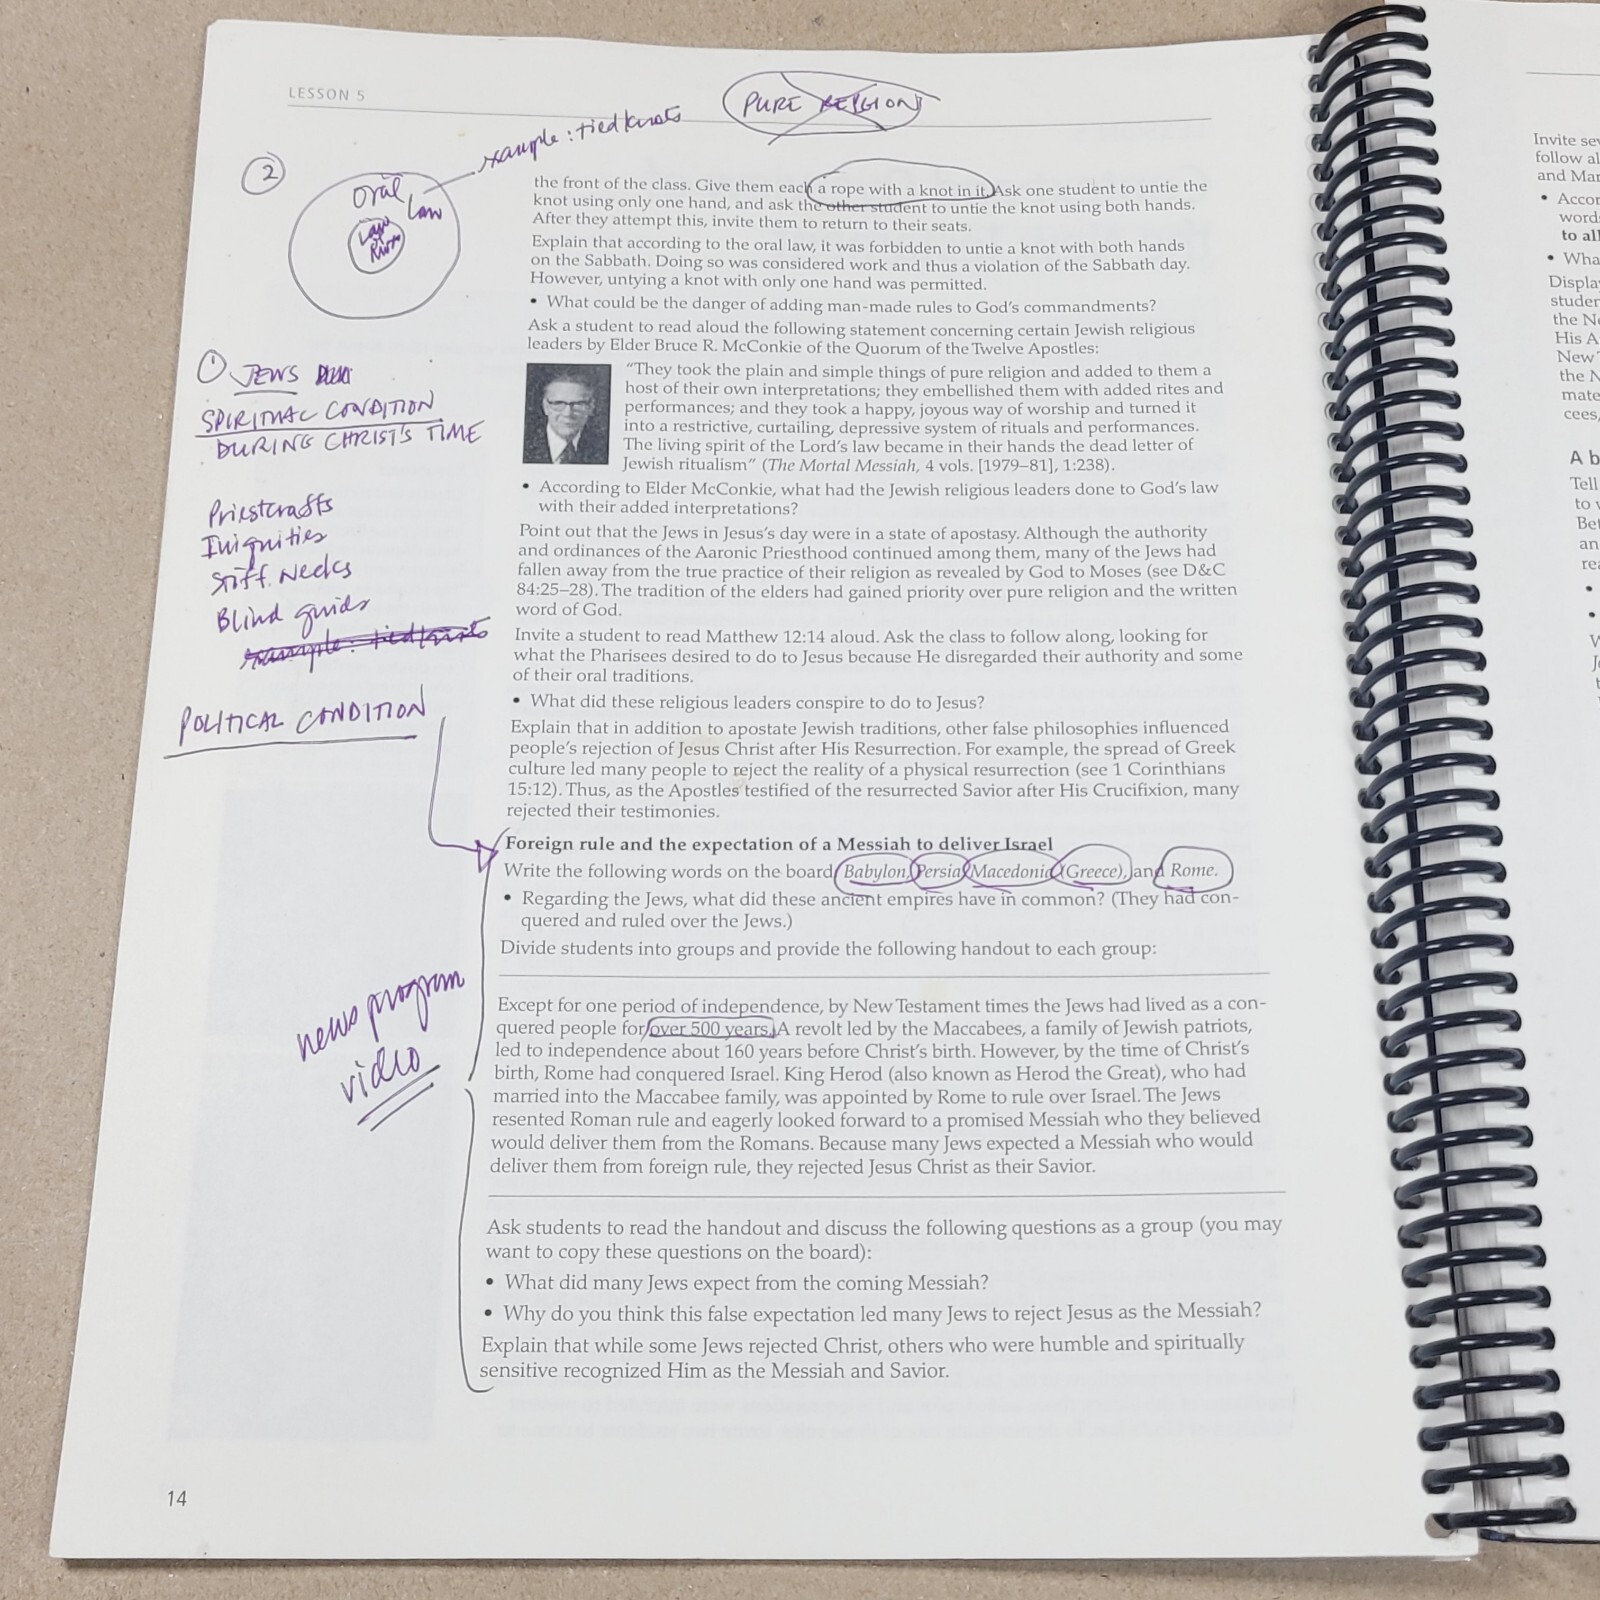 LESSON 5
PURE RELIGION
example: tied knots
2
oral
Law
Law
the front of the class. Give them each a rope with a knot in it. Ask one student to untie the
knot using only one hand, and ask the other student to untie the knot using both hands.
After they attempt this, invite them to return to their seats.
Explain that according to the oral law, it was forbidden to untie a knot with both hands
on the Sabbath. Doing so was considered work and thus a violation of the Sabbath day.
However, untying a knot with only one hand was permitted.
• What could be the danger of adding man-made rules to God's commandments?
Ask a student to read aloud the following statement concerning certain Jewish religious
leaders by Elder Bruce R. McConkie of the Quorum of the Twelve Apostles:
"They took the plain and simple things of pure religion and added to them a
host of their own interpretations; they embellished them with added rites and
performances; and they took a happy, joyous way of worship and turned it
into a restrictive, curtailing, depressive system of rituals and performances.
The living spirit of the Lord's law became in their hands the dead letter of
Jewish ritualism" (The Mortal Messiah, 4 vols. [1979–81], 1:238).
• According to Elder McConkie, what had the Jewish religious leaders done to God's law
with their added interpretations?
Point out that the Jews in Jesus's day were in a state of apostasy. Although the authority
and ordinances of the Aaronic Priesthood continued among them, many of the Jews had
fallen away from the true practice of their religion as revealed by God to Moses (see D&C
84:25–28). The tradition of the elders had gained priority over pure religion and the written
word of God.
Invite a student to read Matthew 12:14 aloud. Ask the class to follow along, looking for
what the Pharisees desired to do to Jesus because He disregarded their authority and some
of their oral traditions.
• What did these religious leaders conspire to do to Jesus?
Explain that in addition to apostate Jewish traditions, other false philosophies influenced
people's rejection of Jesus Christ after His Resurrection. For example, the spread of Greek
culture led many people to reject the reality of a physical resurrection (see 1 Corinthians
15:12). Thus, as the Apostles testified of the resurrected Savior after His Crucifixion, many
rejected their testimonies.
Foreign rule and the expectation of a Messiah to deliver Israel
Write the following words on the board Babylon, Persia, Macedonia (Greece), and Rome.
• Regarding the Jews, what did these ancient empires have in common? (They had con-
quered and ruled over the Jews.)
Divide students into groups and provide the following handout to each group:
Except for one period of independence, by New Testament times the Jews had lived as a con-
quered people for over 500 years. A revolt led by the Maccabees, a family of Jewish patriots,
led to independence about 160 years before Christ's birth. However, by the time of Christ's
birth, Rome had conquered Israel. King Herod (also known as Herod the Great), who had
married into the Maccabee family, was appointed by Rome to rule over Israel. The Jews
resented Roman rule and eagerly looked forward to a promised Messiah who they believed
would deliver them from the Romans. Because many Jews expected a Messiah who would
deliver them from foreign rule, they rejected Jesus Christ as their Savior.
Ask students to read the handout and discuss the following questions as a group (you may
want to copy these questions on the board):
• What did many Jews expect from the coming Messiah?
• Why do you think this false expectation led many Jews to reject Jesus as the Messiah?
Explain that while some Jews rejected Christ, others who were humble and spiritually
sensitive recognized Him as the Messiah and Savior.
1 JEWS
SPIRITUAL CONDITION
DURING CHRIST'S TIME
Priestcrafts
Iniquities
Stiff Necks
Blind guids
example: tied knots
POLITICAL CONDITION
news program
video
14
Invite
follow
and
•
word
to all
•
Display
studen
the
His
New
the
mate
cees,
A
Tell
to
Be
an